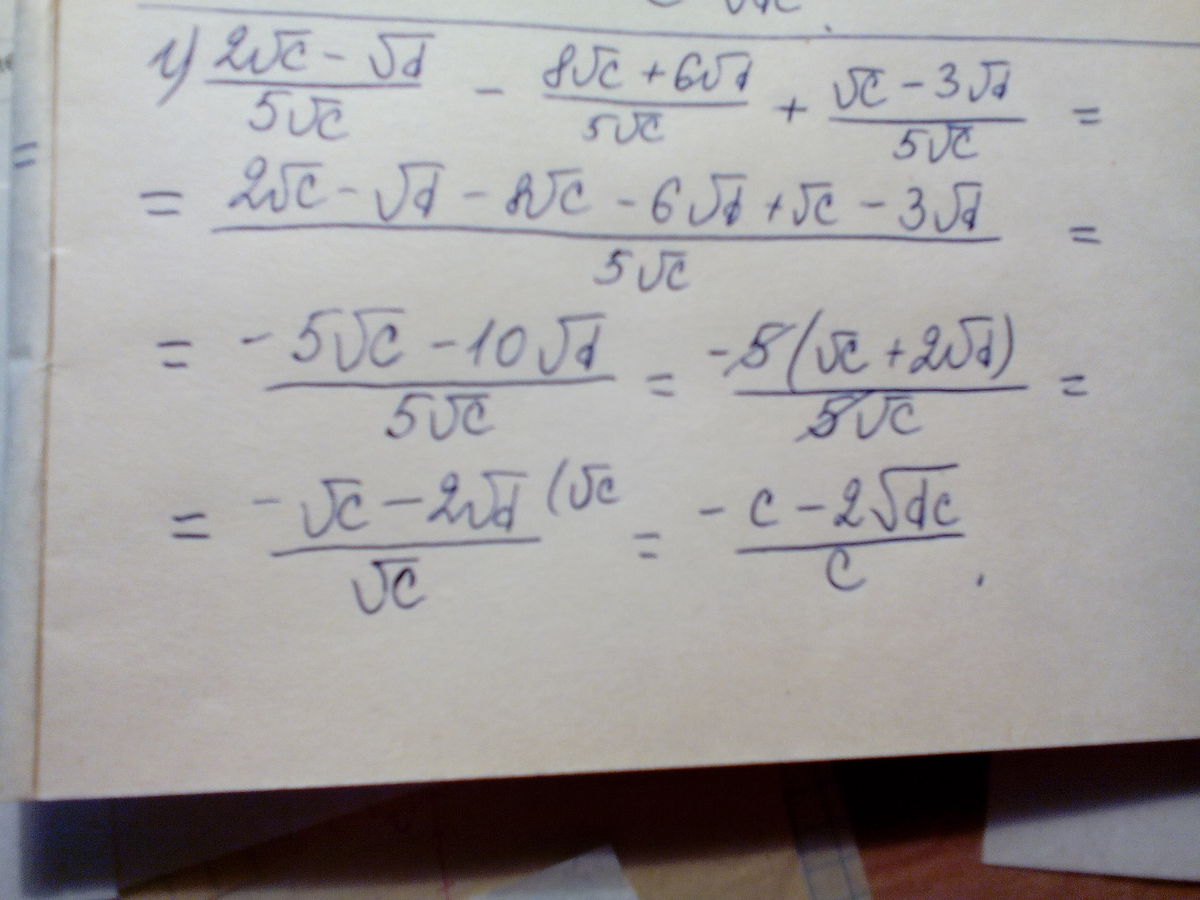 1) (2√c - √d)/(5√c) - (8√c + 6√d)/(5√c) + (√c - 3√d)/(5√c) =
= (2√c - √d - 8√c - 6√d + √c - 3√d)/(5√c) =
= (-5√c - 10√d)/(5√c) = (-5(√c + 2√d))/(5√c) =
= (-√c - 2√d (√c)/(√c) = (-c - 2√dc)/c .